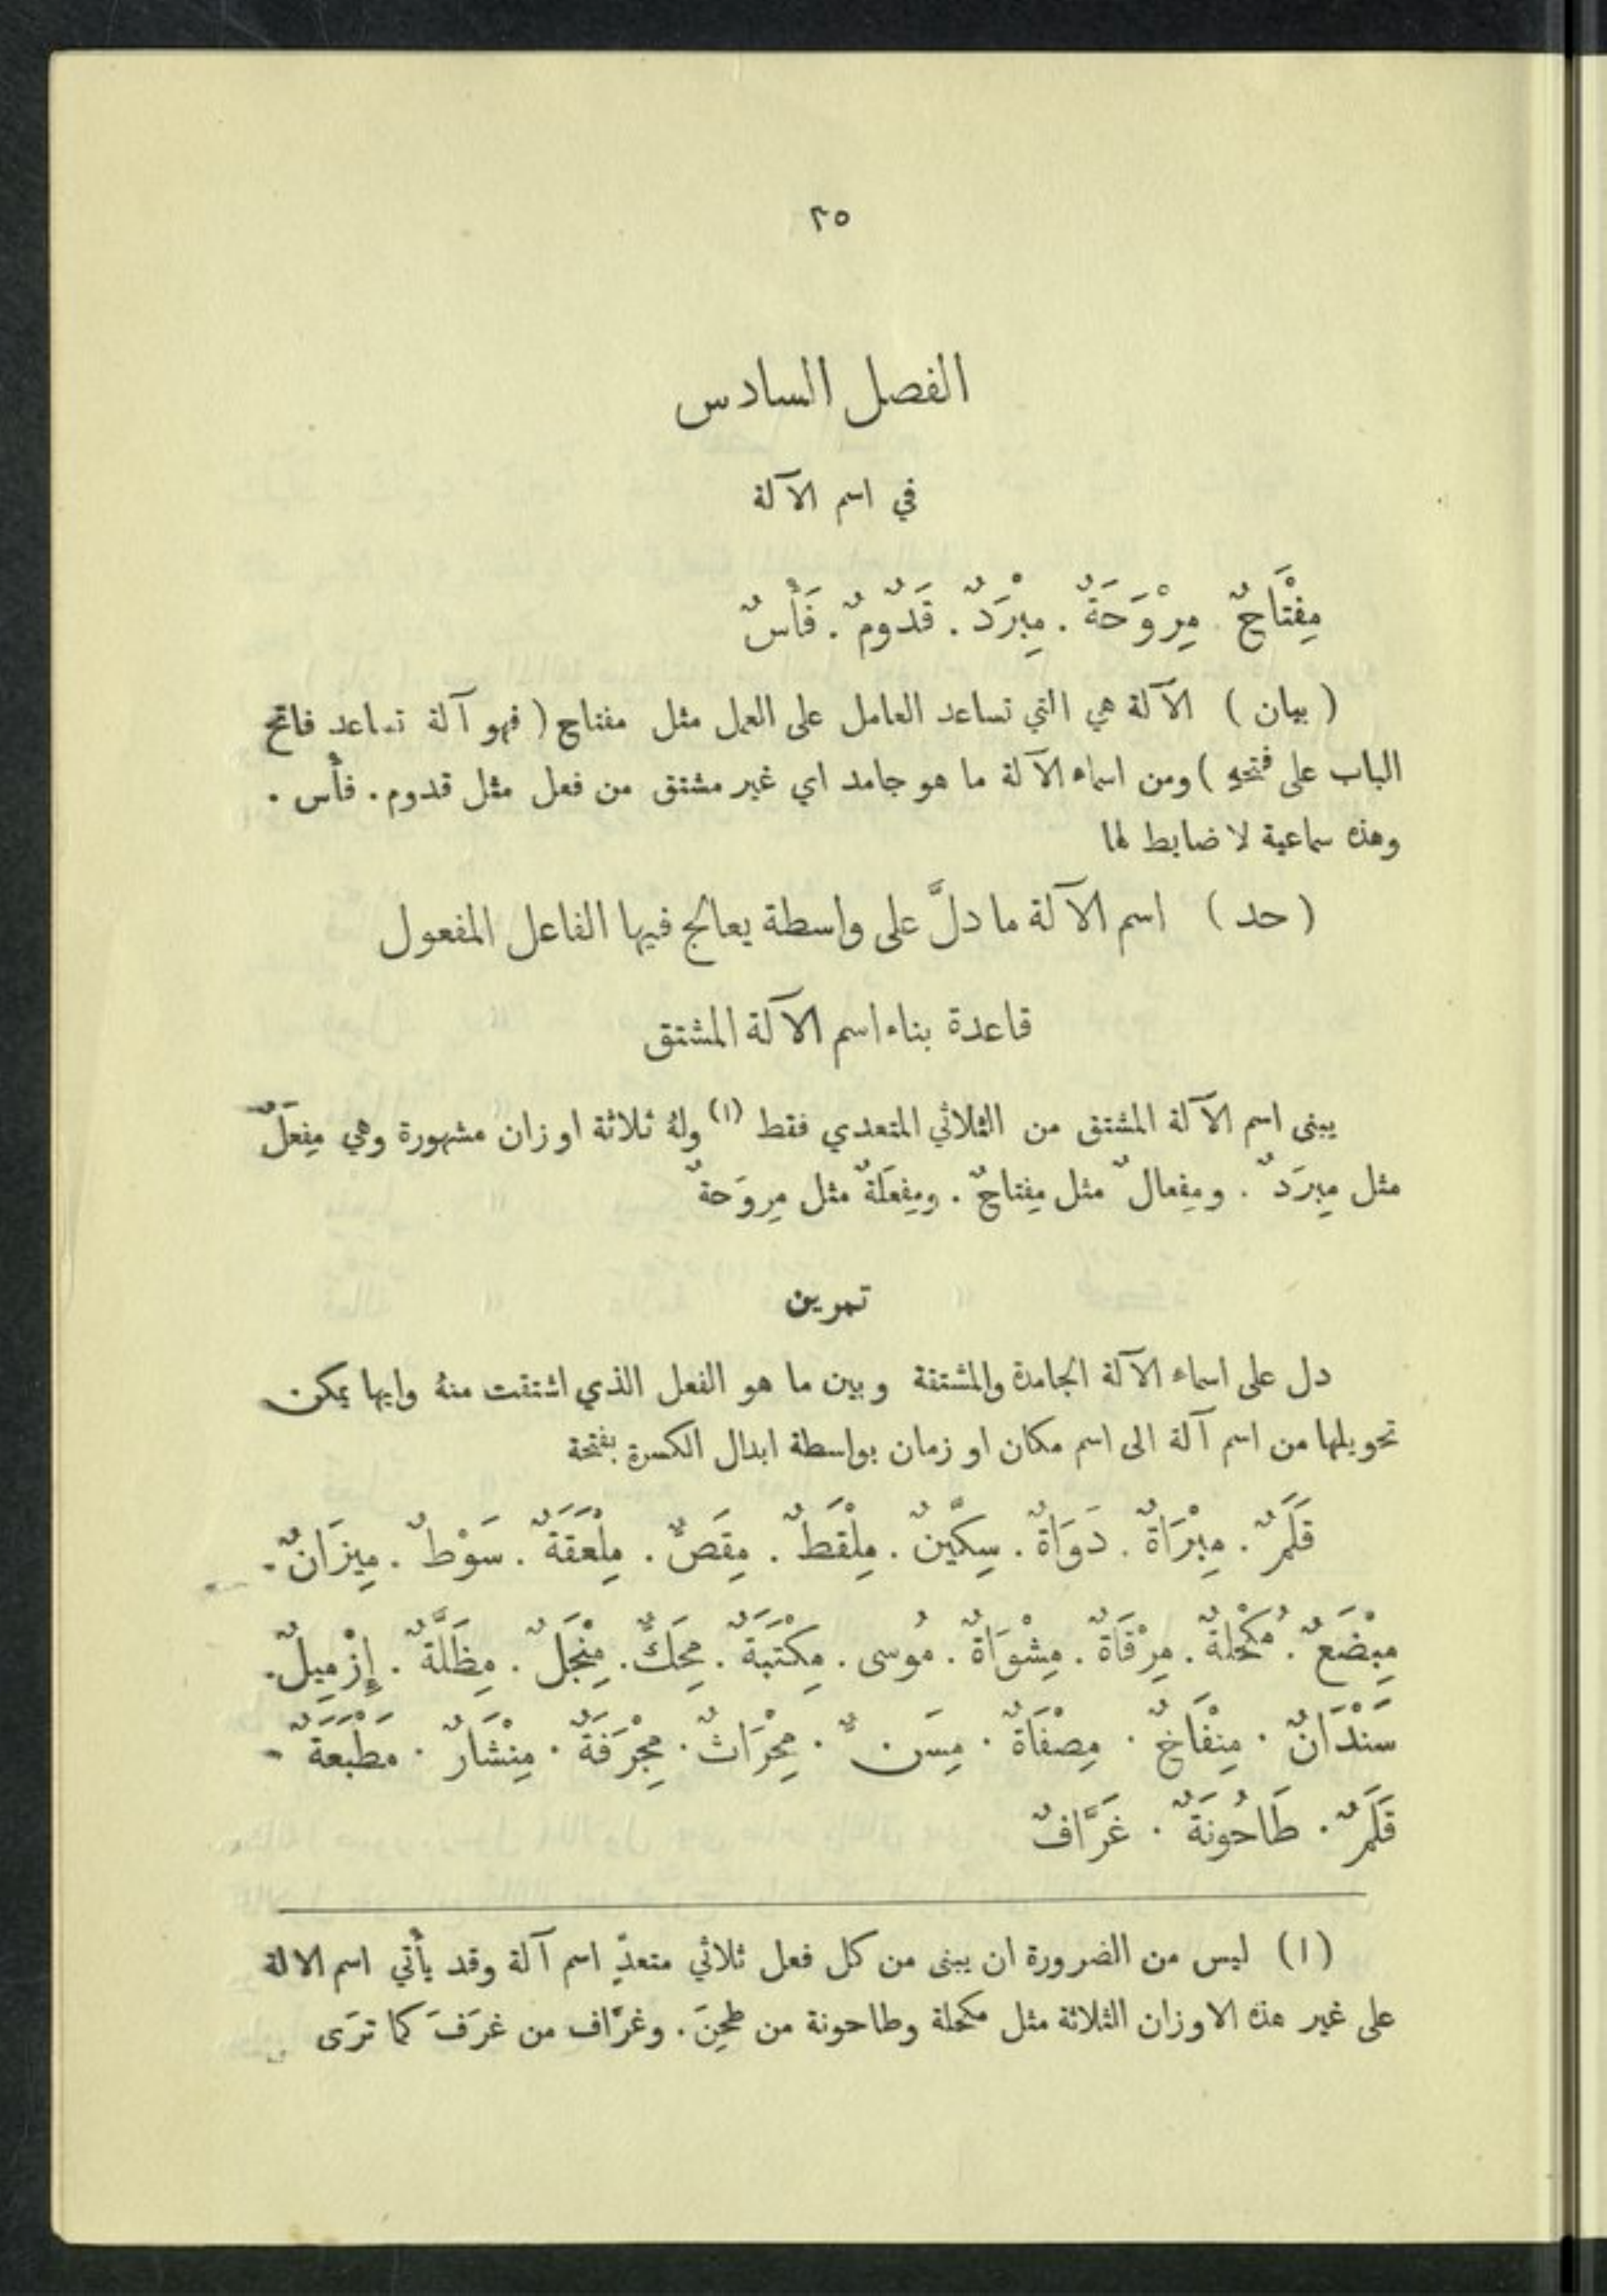 ٢٥
الفصل السادس
في اسم الآلة
مِفْتَاحٌ . مِرْوَحَةٌ . مِبْرَدٌ . قَدُّومٌ . فَأْسٌ
( بيان ) الآلة هي التي تساعد العامل على العمل مثل مفتاح ( فهو آلة تساعد فاتح
الباب على فتحهِ ) ومن اسماء الآلة ما هو جامد اي غير مشتق من فعل مثل قدوم . فأس .
وهذه سماعية لا ضابط لها
( حد ) اسم الآلة ما دلَّ على واسطة يعالج فيها الفاعل المفعول
قاعدة بناء اسم الآلة المشتق
يبنى اسم الآلة المشتق من الثلاثي المتعدي فقط (١) ولهُ ثلاثة اوزان مشهورة وهي مِفعَلٌ
مثل مِبرَدٌ . ومِفعالٌ مثل مِفتاحٌ . ومِفعَلَةٌ مثل مِروَحةٌ
تمرين
دل على اسماء الآلة الجامدة والمشتقة وبين ما هو الفعل الذي اشتقت منهُ وايها يمكن
تحويلها من اسم آلة الى اسم مكان او زمان بواسطة ابدال الكسرة بفتحة
قَلَمٌ . مِبْرَاةٌ . دَوَاةٌ . سِكِّينٌ . مِلْقَطٌ . مِقَصٌّ . مِلْعَقَةٌ . سَوْطٌ . مِيزَانٌ .
مِبْضَعٌ . مُكْحُلةٌ . مِرْقَاةٌ . مِشْوَاةٌ . مُوسى . مِكْتَبَةٌ . مِحَكٌّ . مِنْجَلٌ . مِظَلَّةٌ . إِزْمِيلٌ .
سَنْدَانٌ . مِنْفَاخٌ . مِصْفَاةٌ . مِسَنٌّ . مِحْرَاثٌ . مِجْرَفَةٌ . مِنْشَارٌ . مَطْبَعَةٌ .
قَلَمٌ . طَاحُونَةٌ . غَرَّافٌ
(١) ليس من الضرورة ان يبنى من كل فعل ثلاثي متعدٍّ اسم آلة وقد يأتي اسم الالة
على غير هذه الاوزان الثلاثة مثل مكحلة وطاحونة من طحِنَ . وغرَّاف من غرَفَ كما ترَى